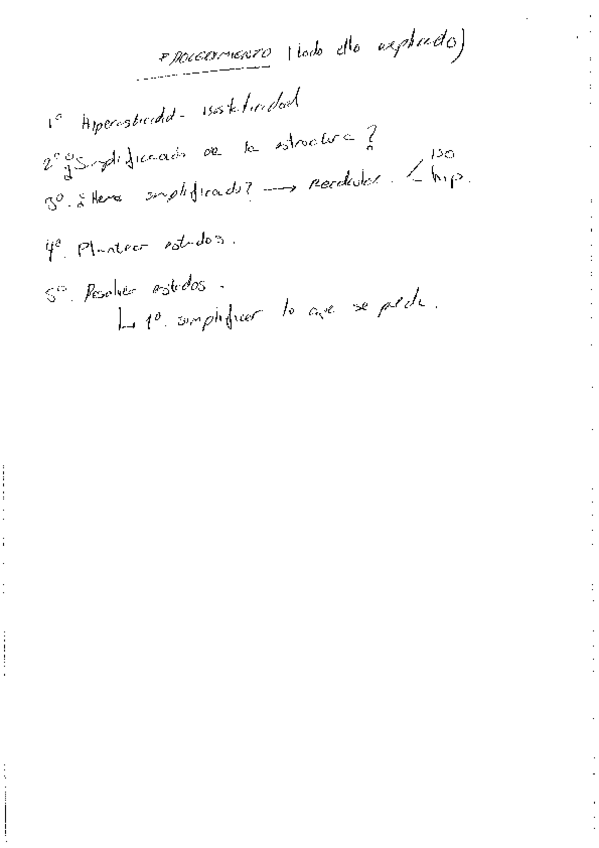 * PROCEDIMIENTO (todo ello explicado)
1º Hiperestaticidad - isostaticidad
2º ¿Simplificación de la estructura?
3º. ¿Hemos simplificado? → Recalcular. < iso
hip.
4º. Plantear estados.
5º. Resolver estados.
↳ 1º. simplificar lo que se pueda.